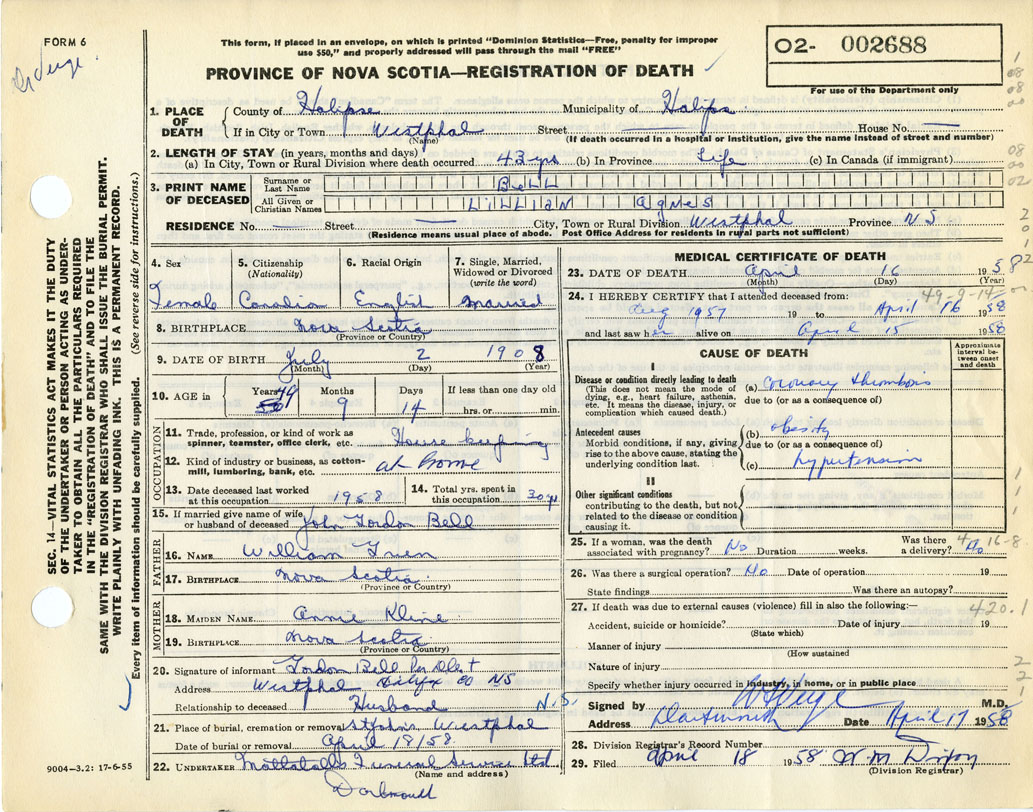 FORM 6
Dr Veige
This form, if placed in an envelope, on which is printed "Dominion Statistics—Free, penalty for improper
use $50," and properly addressed will pass through the mail "FREE"
PROVINCE OF NOVA SCOTIA—REGISTRATION OF DEATH
02- 002688
For use of the Department only
1. PLACE OF DEATH
County of Halifax Municipality of Halifax
If in City or Town Westphal Street — House No. —
(Name) (If death occurred in a hospital or institution, give the name instead of street and number)
2. LENGTH OF STAY (in years, months and days)
(a) In City, Town or Rural Division where death occurred 43 yrs (b) In Province Life (c) In Canada (if immigrant)
3. PRINT NAME OF DECEASED
Surname or Last Name BELL
All Given or Christian Names LILLIAN AGNES
RESIDENCE No. — Street — City, Town or Rural Division Westphal Province N S
(Residence means usual place of abode. Post Office Address for residents in rural parts not sufficient)
4. Sex 5. Citizenship (Nationality) 6. Racial Origin 7. Single, Married, Widowed or Divorced (write the word)
Female Canadian English Married
8. BIRTHPLACE Nova Scotia
(Province or Country)
9. DATE OF BIRTH July 2 1908
(Month) (Day) (Year)
10. AGE in Years 49 Months 9 Days 14 If less than one day old
hrs. or min.
OCCUPATION
11. Trade, profession, or kind of work as spinner, teamster, office clerk, etc. House keeping
12. Kind of industry or business, as cotton-mill, lumbering, bank, etc. at home
13. Date deceased last worked at this occupation 1958 14. Total yrs. spent in this occupation 30 yrs
15. If married give name of wife or husband of deceased John Gordon Bell
FATHER
16. NAME William
17. BIRTHPLACE Nova Scotia
(Province or Country)
MOTHER
18. MAIDEN NAME Annie Kline
19. BIRTHPLACE Nova Scotia
(Province or Country)
20. Signature of informant Gordon Bell
Address Westphal Halifax Co NS
Relationship to deceased Husband N.S.
21. Place of burial, cremation or removal St Johns Westphal
Date of burial or removal April 18/58
22. UNDERTAKER Mattatalls Funeral Service Ltd
(Name and address)
Dartmouth
MEDICAL CERTIFICATE OF DEATH
23. DATE OF DEATH April 16 1958
(Month) (Day) (Year)
49-9-14
24. I HEREBY CERTIFY that I attended deceased from:
Aug 1957 19 to April 16 1958
and last saw her alive on April 15 1958
CAUSE OF DEATH
Approximate interval between onset and death
I
Disease or condition directly leading to death
(This does not mean the mode of dying, e.g., heart failure, asthenia, etc. It means the disease, injury, or complication which caused death.)
(a) coronary thrombosis
due to (or as a consequence of)
Antecedent causes
Morbid conditions, if any, giving rise to the above cause, stating the underlying condition last.
(b) obesity
due to (or as a consequence of)
(c) hypertension
II
Other significant conditions
contributing to the death, but not related to the disease or condition causing it.
25. If a woman, was the death associated with pregnancy? No Duration weeks. Was there a delivery? No
26. Was there a surgical operation? No Date of operation 19
State findings Was there an autopsy?
27. If death was due to external causes (violence) fill in also the following:—
420.1
Accident, suicide or homicide? Date of injury 19
(State which)
Manner of injury
(How sustained
Nature of injury
Specify whether injury occurred in industry, in home, or in public place
Signed by M.D.
Address Dartmouth Date April 17 1958
28. Division Registrar's Record Number
29. Filed April 18 1958 W M Dixon
(Division Registrar)
SEC. 14—VITAL STATISTICS ACT MAKES IT THE DUTY
OF THE UNDERTAKER OR PERSON ACTING AS UNDER-
TAKER TO OBTAIN ALL THE PARTICULARS REQUIRED
IN THE "REGISTRATION OF DEATH" AND TO FILE THE
SAME WITH THE DIVISION REGISTRAR WHO SHALL ISSUE THE BURIAL PERMIT.
WRITE PLAINLY WITH UNFADING INK. THIS IS A PERMANENT RECORD.
Every item of information should be carefully supplied. (See reverse side for instructions.)
9004-3.2: 17-6-55